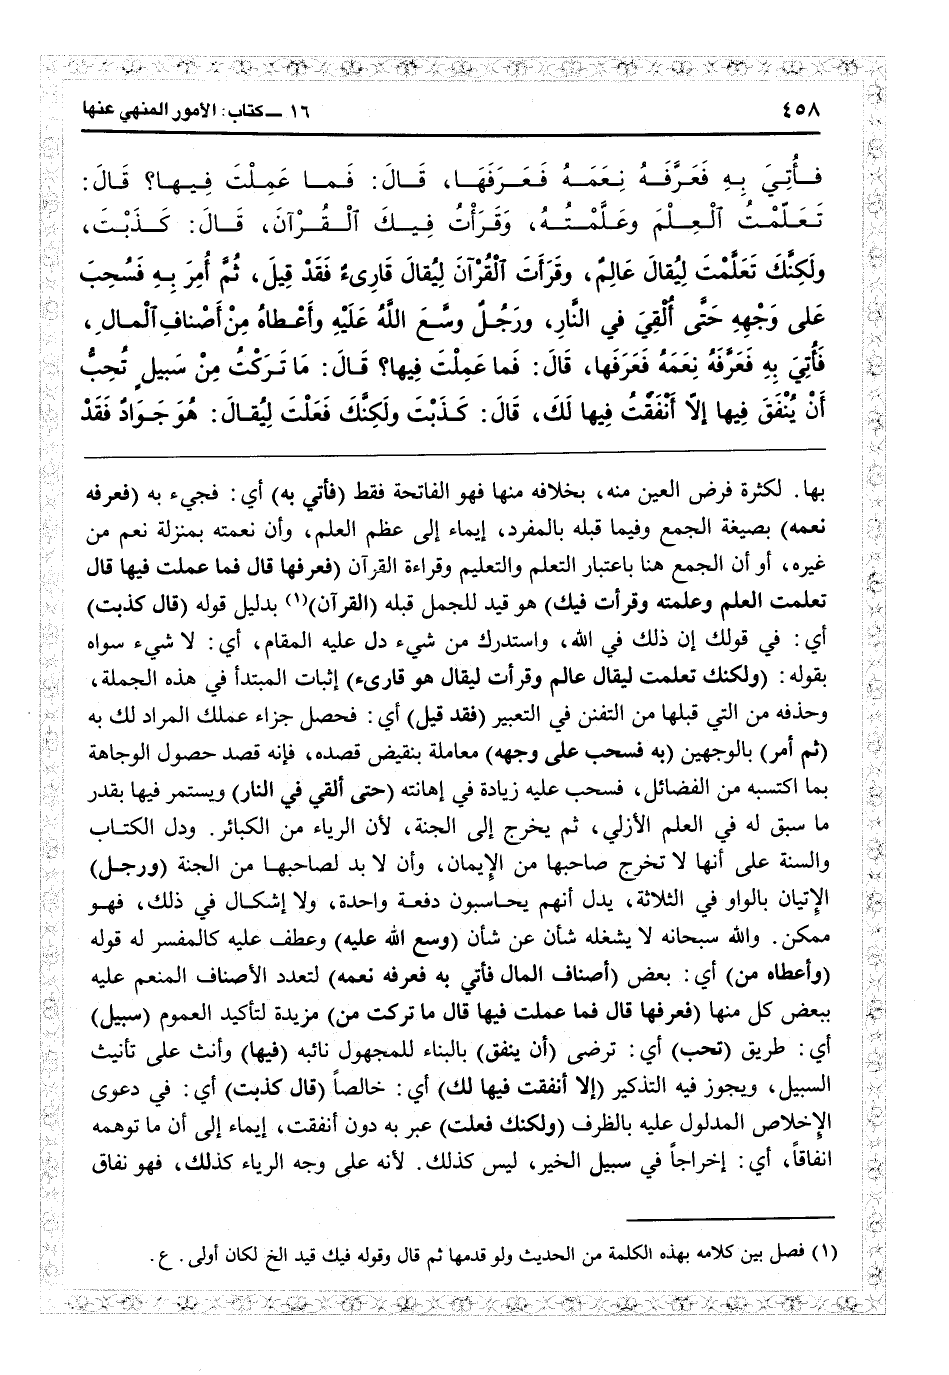 ٤٥٨
١٦ ــ كتاب: الأمور المنهي عنها
فَأُتِيَ بِهِ فَعَرَّفَهُ نِعَمَهُ فَعَرَفَهَا، قَالَ: فَمَا عَمِلْتَ فِيهَا؟ قَالَ:
تَعَلَّمْتُ ٱلْعِلْمَ وعَلَّمْتُهُ، وَقَرَأْتُ فِيكَ ٱلْقُرْآنَ، قَالَ: كَذَبْتَ،
ولَكِنَّكَ تَعَلَّمْتَ لِيُقالَ عَالِمٌ، وقَرَأتَ ٱلْقُرْآنَ لِيُقالَ قَارِىءٌ فَقَدْ قِيلَ، ثُمَّ أُمِرَ بِهِ فَسُحِبَ
عَلى وَجْهِهِ حَتَّى أُلْقِيَ في النَّارِ، ورَجُلٌ وسَّعَ اللَّهُ عَلَيْهِ وأَعْطاهُ مِنْ أَصْنافِ ٱلْمالِ،
فَأُتِيَ بِهِ فَعَرَّفَهُ نِعَمَهُ فَعَرَفَها، قَالَ: فَما عَمِلْتَ فِيها؟ قَالَ: مَا تَرَكْتُ مِنْ سَبِيلٍ تُحِبُّ
أَنْ يُنْفَقَ فِيها إلاَّ أَنْفَقْتُ فِيها لَكَ، قَالَ: كَذَبْتَ ولَكِنَّكَ فَعَلْتَ لِيُقالَ: هُوَ جَوَادٌ فَقَدْ
بها. لكثرة فرض العين منه، بخلافه منها فهو الفاتحة فقط (فأتي به) أي: فجيء به (فعرفه
نعمه) بصيغة الجمع وفيما قبله بالمفرد، إيماء إلى عظم العلم، وأن نعمته بمنزلة نعم من
غيره، أو أن الجمع هنا باعتبار التعلم والتعليم وقراءة القرآن (فعرفها قال فما عملت فيها قال
تعلمت العلم وعلمته وقرأت فيك) هو قيد للجمل قبله (القرآن)(١) بدليل قوله (قال كذبت)
أي: في قولك إن ذلك في الله، واستدرك من شيء دل عليه المقام، أي: لا شيء سواه
بقوله: (ولكنك تعلمت ليقال عالم وقرأت ليقال هو قارىء) إثبات المبتدأ في هذه الجملة،
وحذفه من التي قبلها من التفنن في التعبير (فقد قيل) أي: فحصل جزاء عملك المراد لك به
(ثم أمر) بالوجهين (به فسحب على وجهه) معاملة بنقيض قصده، فإنه قصد حصول الوجاهة
بما اكتسبه من الفضائل، فسحب عليه زيادة في إهانته (حتى ألقي في النار) ويستمر فيها بقدر
ما سبق له في العلم الأزلي، ثم يخرج إلى الجنة، لأن الرياء من الكبائر. ودل الكتاب
والسنة على أنها لا تخرج صاحبها من الإيمان، وأن لا بد لصاحبها من الجنة (ورجل)
الإتيان بالواو في الثلاثة، يدل أنهم يحاسبون دفعة واحدة، ولا إشكال في ذلك، فهو
ممكن. والله سبحانه لا يشغله شأن عن شأن (وسع الله عليه) وعطف عليه كالمفسر له قوله
(وأعطاه من) أي: بعض (أصناف المال فأتي به فعرفه نعمه) لتعدد الأصناف المنعم عليه
ببعض كل منها (فعرفها قال فما عملت فيها قال ما تركت من) مزيدة لتأكيد العموم (سبيل)
أي: طريق (تحب) أي: ترضى (أن ينفق) بالبناء للمجهول نائبه (فيها) وأنث على تأنيث
السبيل، ويجوز فيه التذكير (إلا أنفقت فيها لك) أي: خالصاً (قال كذبت) أي: في دعوى
الإخلاص المدلول عليه بالظرف (ولكنك فعلت) عبر به دون أنفقت، إيماء إلى أن ما توهمه
انفاقاً، أي: إخراجاً في سبيل الخير، ليس كذلك. لأنه على وجه الرياء كذلك، فهو نفاق
(١) فصل بين كلامه بهذه الكلمة من الحديث ولو قدمها ثم قال وقوله فيك قيد الخ لكان أولى. ع.